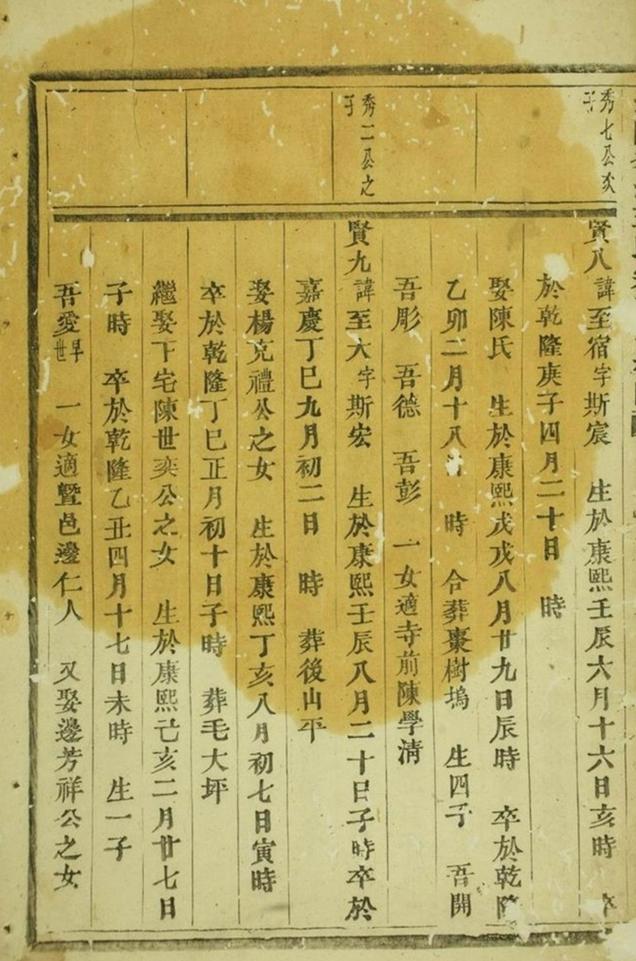 秀七公次子
賢八諱至宿字斯宸 生於康熙壬辰六月十六日亥時 卒
於乾隆庚子四月二十日 時
娶陳氏 生於康熙戊戌八月廿九日辰時 卒於乾隆
乙卯二月十八 時 合葬棗樹塢 生四子 吾開
吾彫 吾德 吾彭 一女適寺前陳學清
秀二公之子
賢九諱至大字斯宏 生於康熙壬辰八月二十日子時卒於
嘉慶丁巳九月初二日 時 葬後山平
娶楊克禮公之女 生於康熙丁亥八月初七日寅時
卒於乾隆丁巳正月初十日子時 葬毛大坪
繼娶下宅陳世奕公之女 生於康熙己亥二月廿七日
子時 卒於乾隆乙丑四月十七日未時 生一子
吾愛早世 一女適暨邑邊仁人 又娶邊芳祥公之女